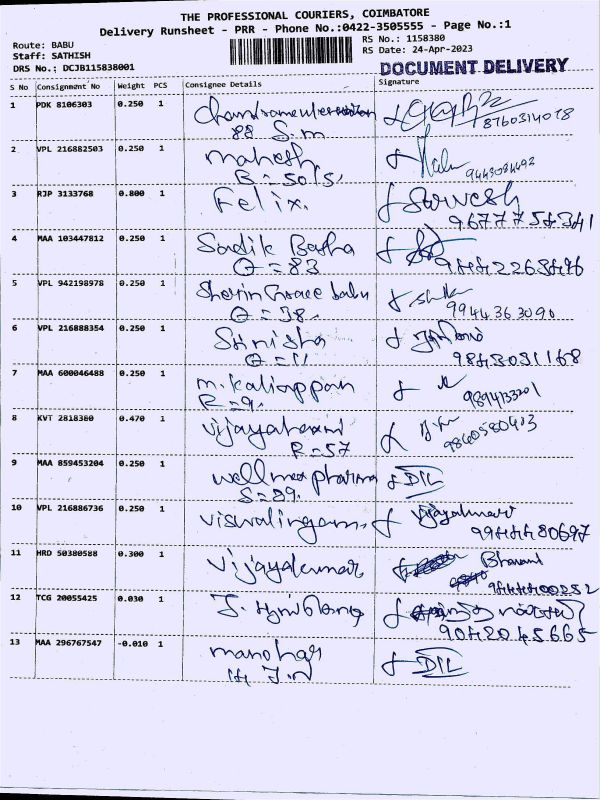 THE PROFESSIONAL COURIERS, COIMBATORE
Delivery Runsheet - PRR - Phone No.:0422-3505555 - Page No.:1
Route: BABU
Staff: SATHISH
DRS No.: DCJB115838001
RS No.: 1158380
RS Date: 24-Apr-2023
DOCUMENT DELIVERY
S No Consignment No Weight PCS Consignee Details Signature
1 PDK 8106303 0.250 1
88 S.m 8760314078
2 VPL 216882503 0.250 1 mahesh
B=5015, 9443084492
3 RJP 3133768 0.800 1 Felix. Sarvesh
9677754341
4 MAA 103447812 0.250 1 Sadik Basha
Q=83
5 VPL 942198978 0.250 1 Sherin Grace babu
Q=38. 9944363090
6 VPL 216888354 0.250 1 Srinisha
Q=11 9843031168
7 MAA 600046488 0.250 1 m. Kaliappan
R=9.
8 KVT 2818380 0.470 1
R=57 9840580403
9 MAA 859453204 0.250 1 wellmea pharma DIL
S=89.
10 VPL 216886736 0.250 1 viswalingam.
9944480697
11 HRD 50380588 0.300 1 Vijayakumar Bhavani
9444400252
12 TCG 20055425 0.030 1
9042045665
13 MAA 296767547 -0.010 1 manohar DIL